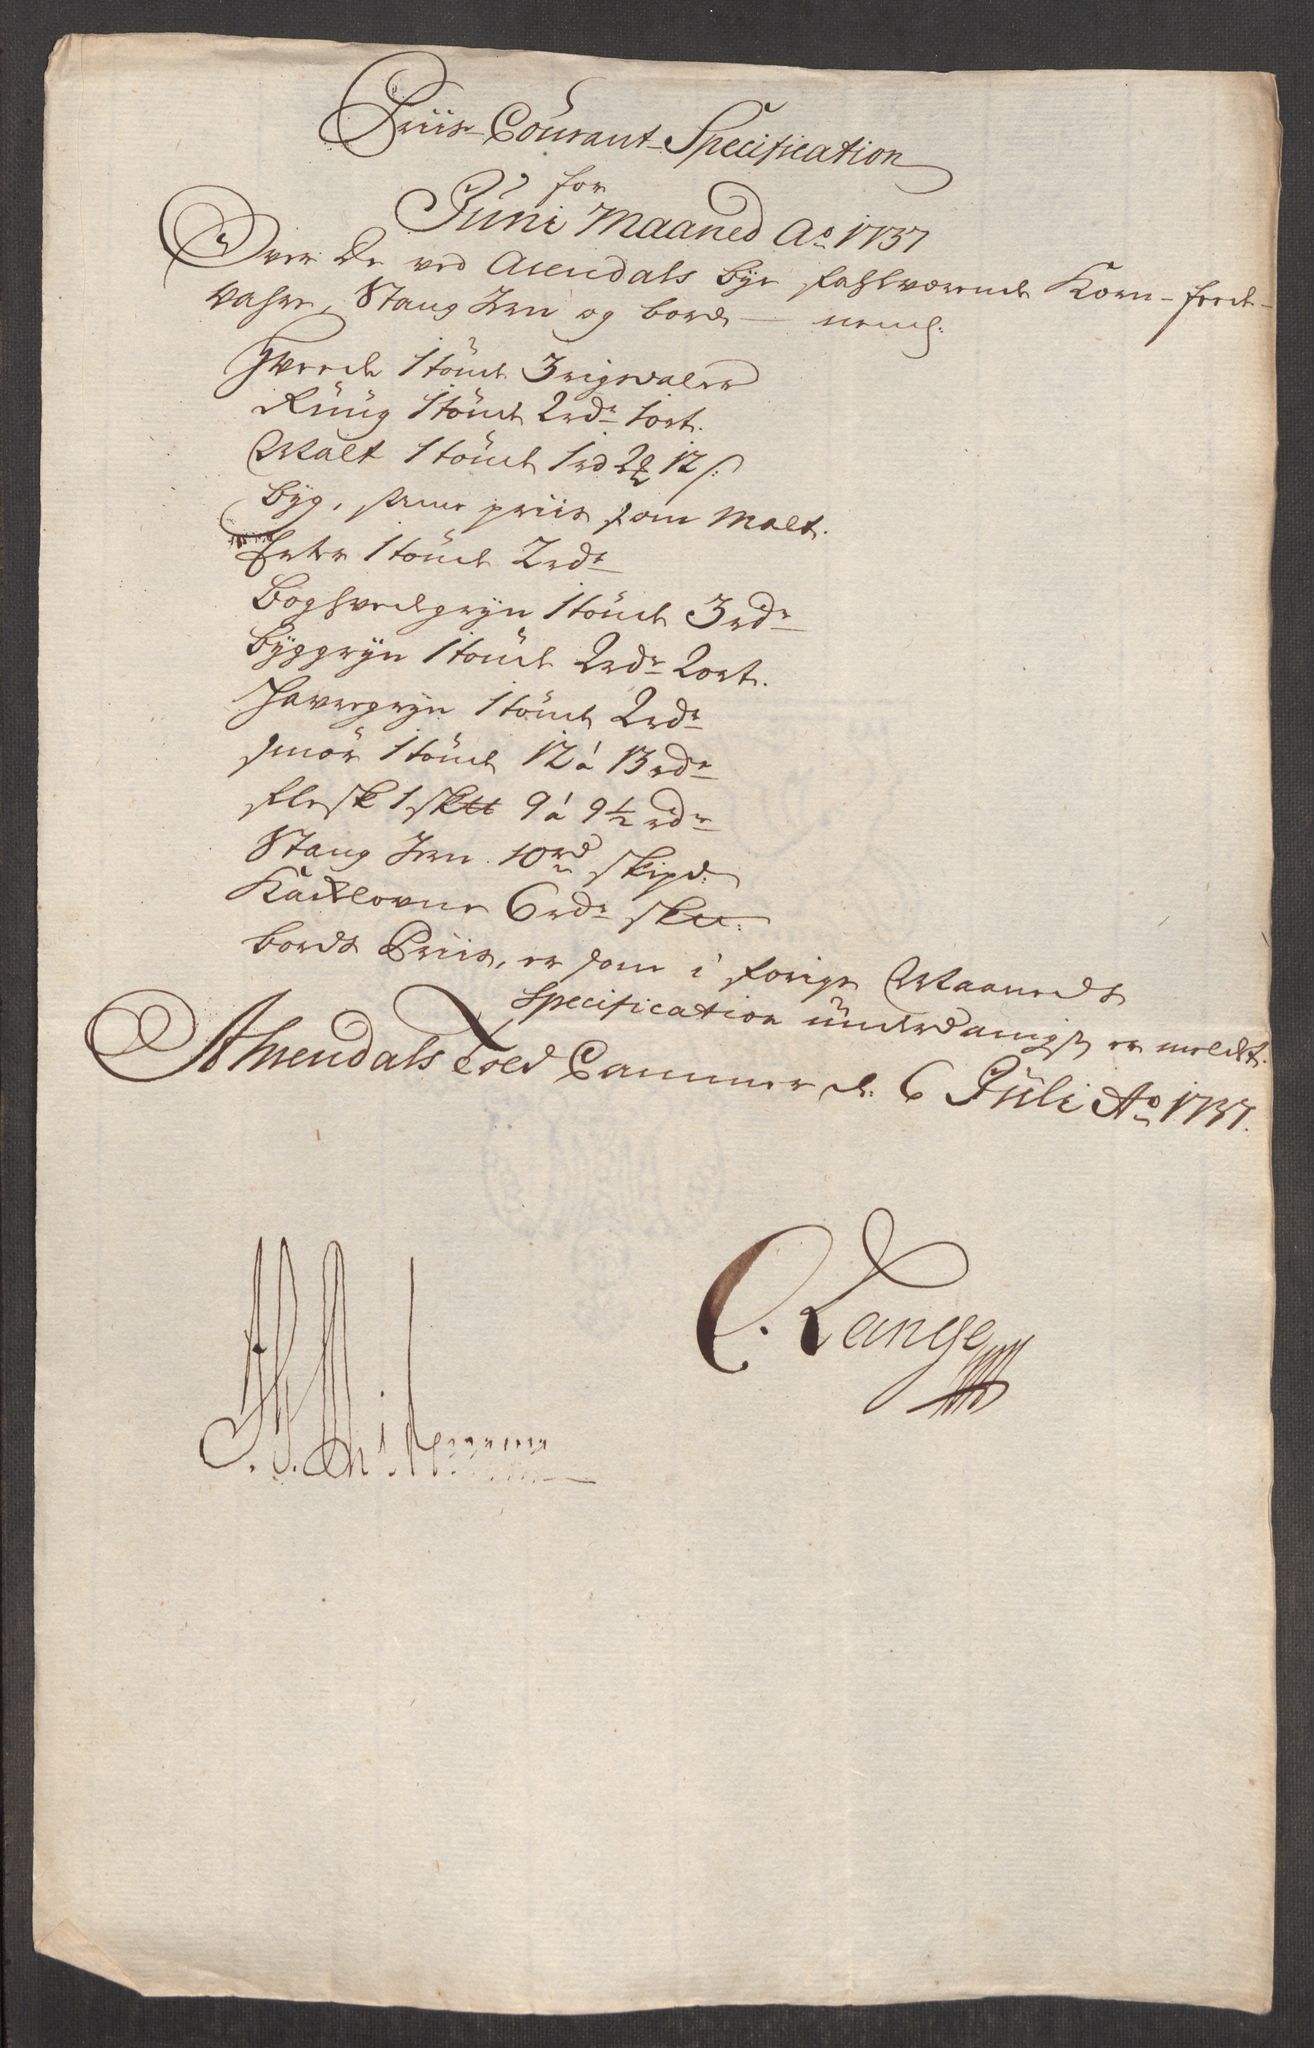 Priis-Courant-Specification
for
Juni Maaned Ao 1737
Over De ved Arendals bye falsværende Korn- feede-
vahre, Stang Jrn og bord — neml:
Hveede 1 tönde 3 rigsdaler
Rüüg 1 tönde 2 rdr 1 ort.
Malt 1 tönde 1 rd 2 12 s:
byg, samme priis som Malt.
Erter 1 tönde 2 rdr
boghvedegryn 1 tönde 3 rdr
byggryn 1 tönde 2 rdr 2 ort.
Havergryn 1 tönde 2 rdr
smör 1 tönde 12 à 13 rdr
flesk 1 sk℔ 9 à 9½ rdr
Stang Jrn 10 rd skipd:
Kackelovne 6 rdr sk℔:
bords Priis, er som i forige Maaneds
specification ünderdanigst er meldt.
Ahrendals Told Cammer d: 6 Juli Ao 1737.
C. Lange